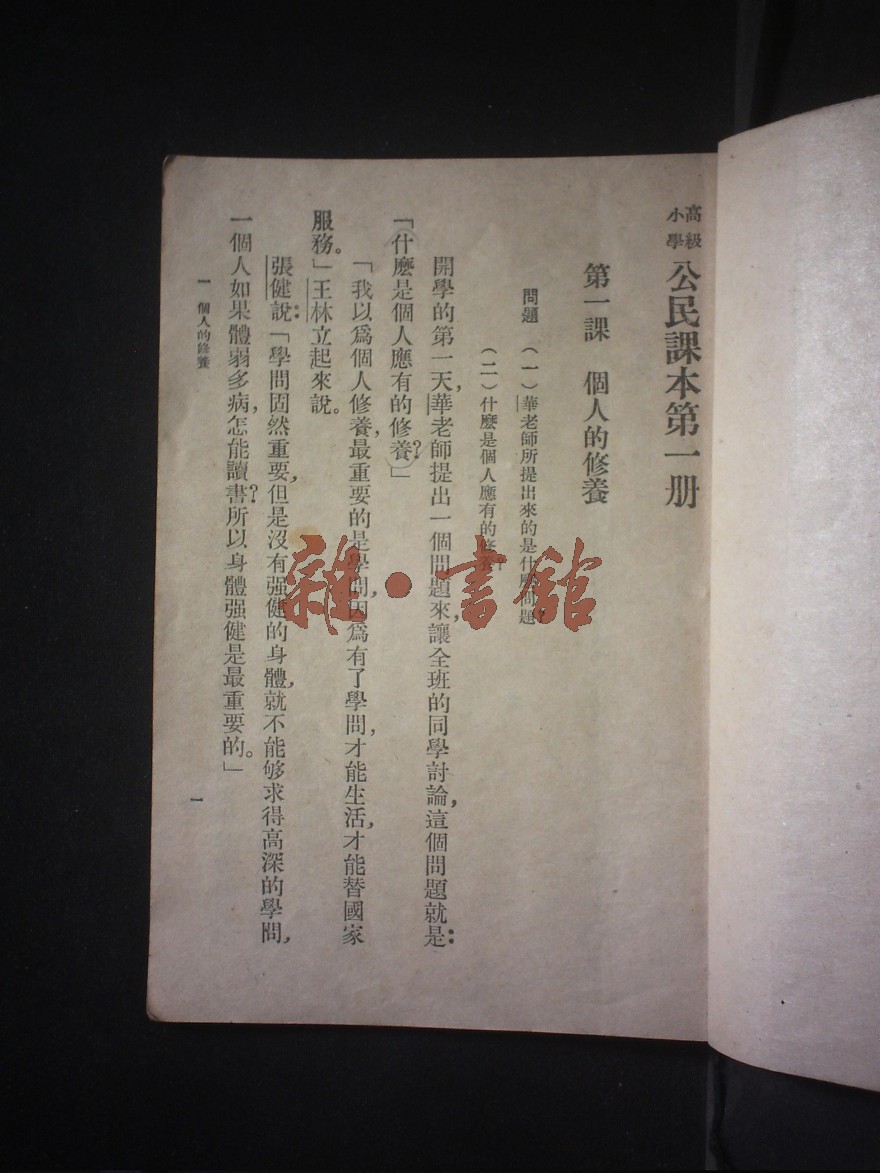 高級小學 公民課本第一册
第一課　個人的修養
問題　(一)華老師所提出來的是什麼問題?
(二)什麼是個人應有的修養?
開學的第一天,華老師提出一個問題來,讓全班的同學討論,這個問題就是:
「什麼是個人應有的修養?」
「我以爲個人修養,最重要的是學問,因爲有了學問,才能生活,才能替國家
服務。」王林立起來說。
張健說:「學問固然重要,但是沒有强健的身體,就不能够求得高深的學問,
一個人如果體弱多病,怎能讀書?所以身體强健是最重要的。」
一　個人的修養
一
雜·書館